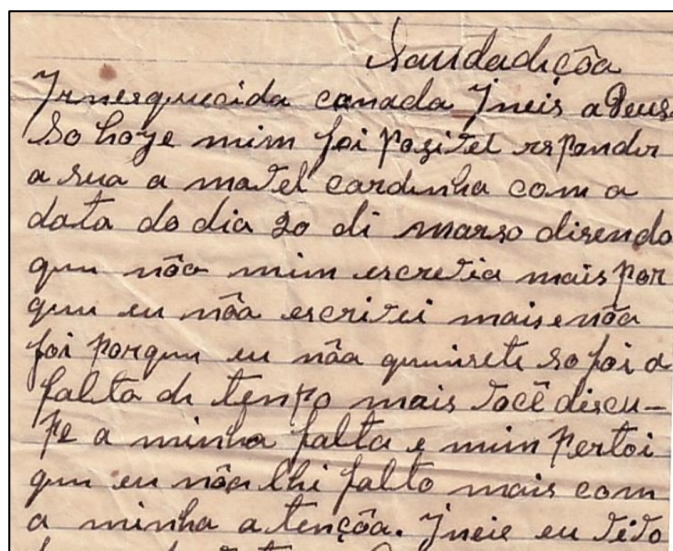 Saudadiçôa
Ynesquecida cunada Yneis aDeus
So hoye mim foi posivel respondir
a sua a mavel cardinha com a
data do dia 20 di marso disendo
que nôa mim escrevia mais por
que eu nôa escrivei mais e nôa
foi porque eu nôa quisete so foi a
falta de tenpo mais você discu-
pe a minha falta e mim pertoi
que eu nôa lhi falto mais com
a minha a tençôa. Yneis eu vivo